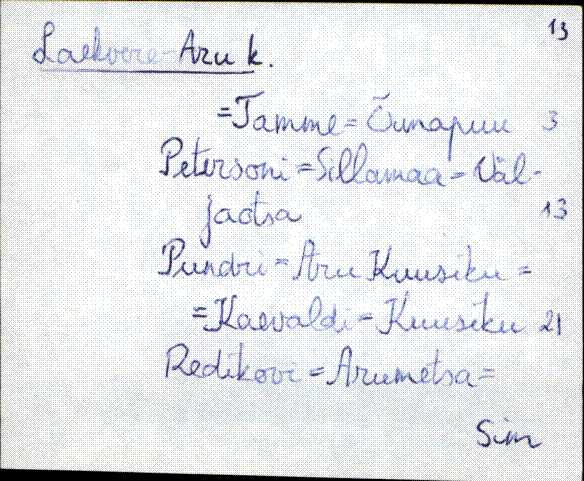 13
Laekvere-Aru k.
=Tamme=Õunapuu 3
Petersoni=Sillamaa-Väl-
jaotsa 13
Pundri=Aru Kuusiku=
=Kaevaldi=Kuusiku 21
Redikovi=Arumetsa=
Sim